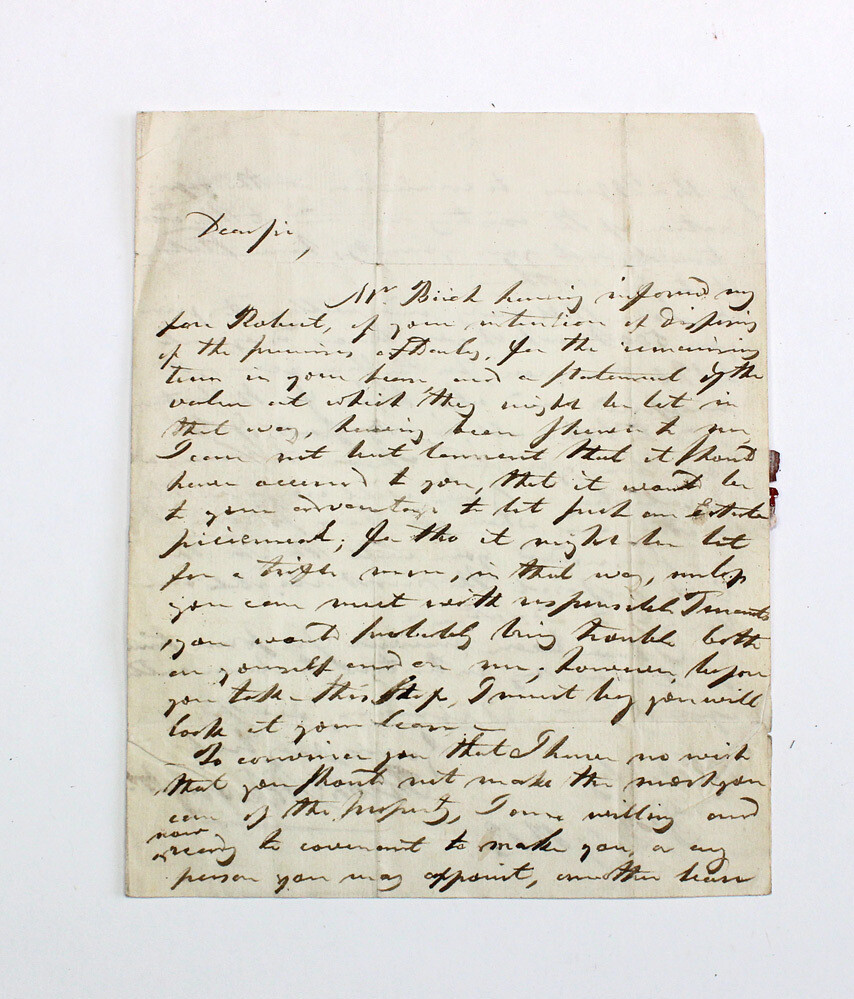 Dear Sir,
Mr. Birch having informed my
Son Robert, of your intention of disposing
of the premises at Danby, for the remaining
term in your lease, and a Statement of the
value at which they might be let in
that way, having been Shewn to me,
I can not but lament that it Should
have occurred to you, that it would be
to your advantage to let Such an Estate
piecemeal; for tho it might be let
for a trifle more, in that way, unless
you can meet with responsible Tenants
you would probably bring trouble both
on yourself and on me; however, before
you take this Step, I must beg you will
look at your lease –
To convince you that I have no wish
that you Should not make the most you
can of the Property, I am willing and
now
ready to covenant to make you, or any
person you may appoint, another lease